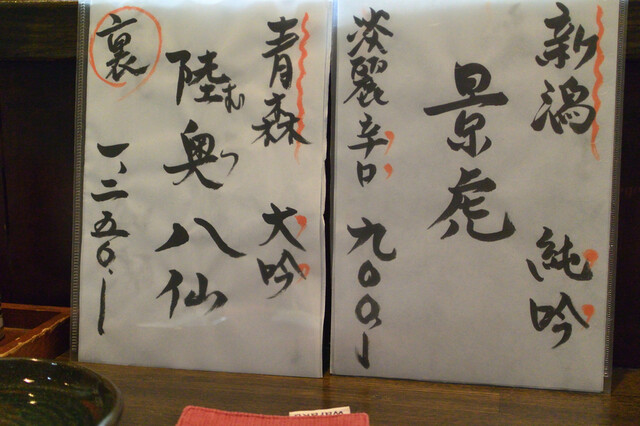 新潟 純吟
景虎
淡麗辛口 九〇〇、ー
青森 大吟
陸奥八仙
むつ
裏 一、二五〇、ー